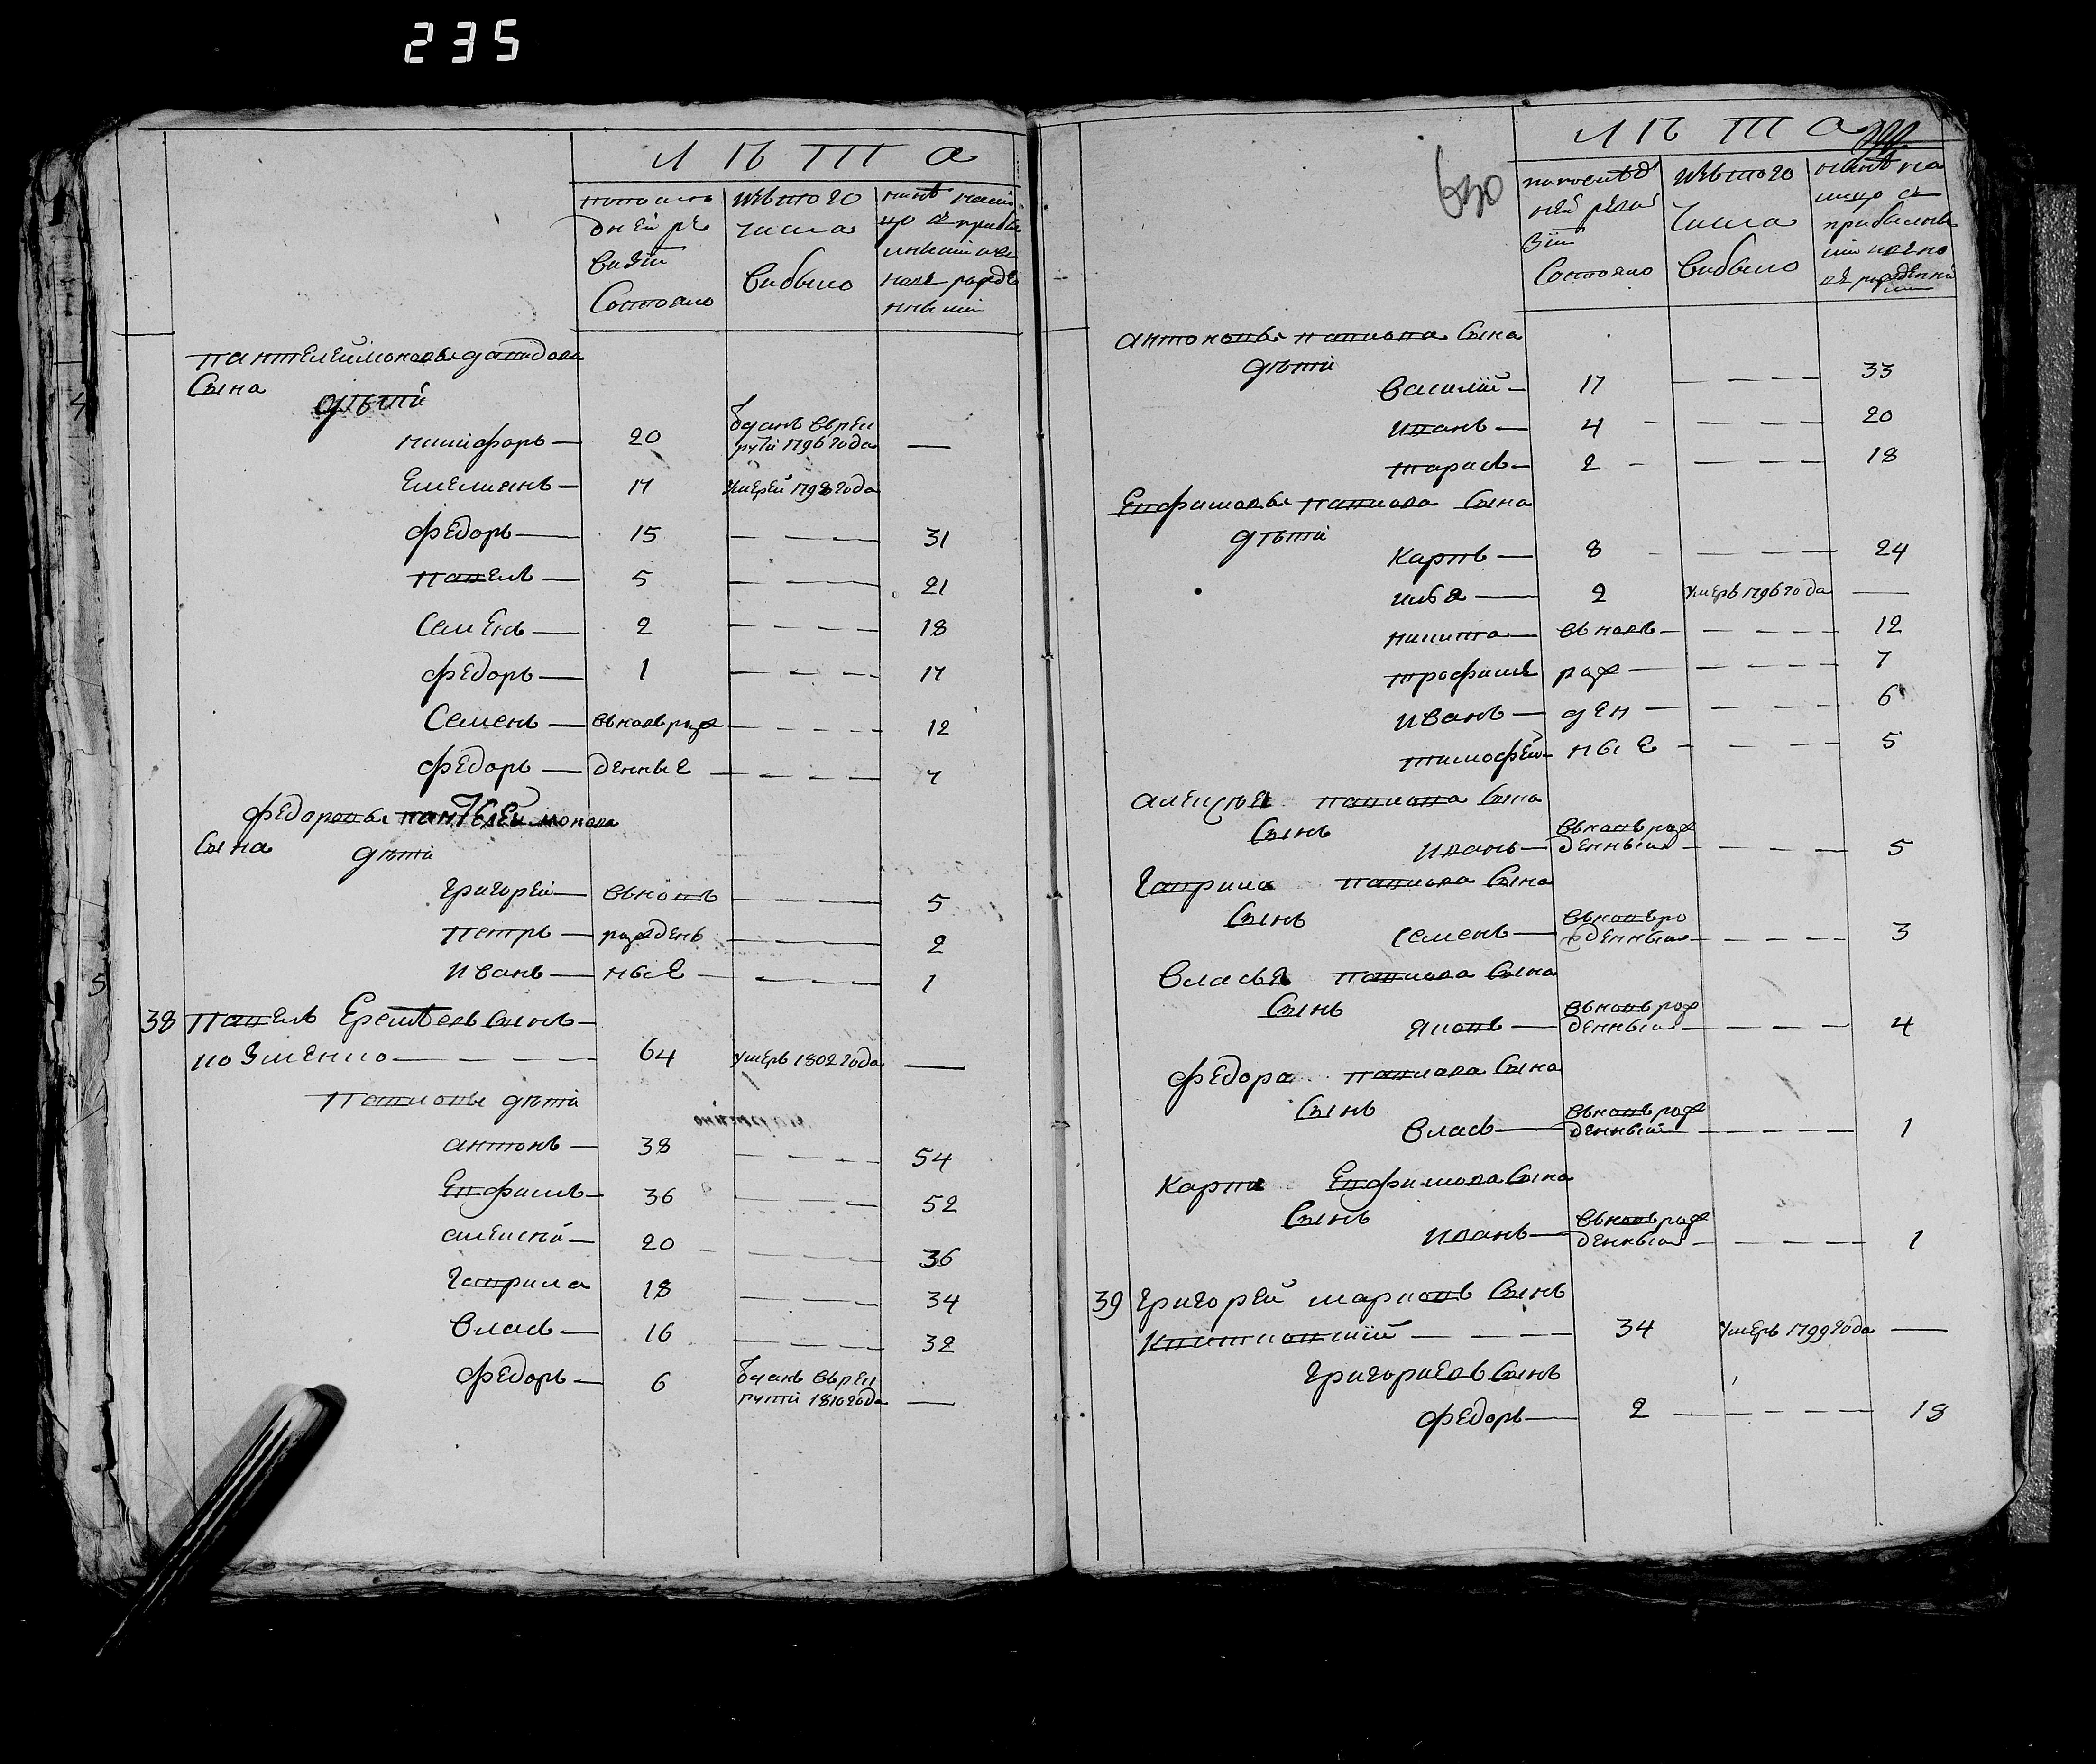 235
ЛѢТА
попослѣ
дней ре
визіи
Состояло
изъ того
числа
выбыло
нынѣ налі
цо съ прибы
лыми и въ
новѣ рожде
нными
Пантелеймоновы Давидова
Сына
дѣти
Никифоръ — 20 Отданъ въ рек
руты 1796 года —
Емельянъ — 17 Умерей 1798 года
Федоръ — 15 — — — 31
Павелъ — 5 — — — 21
Семенъ — 2 — — — 18
Федоръ — 1 — — — 17
Семенъ — вновь рож — — — 12
Федоръ — денные — — — 7
Федоровы Пантелеймонова
Сына дѣти
Григорей — вновь — — — 5
Петръ — рожден — — — 2
Иванъ — ные — — — 1
38 Павелъ Еремѣевъ Сынъ —
64 Умеръ 1802 года —
Павловы дѣти
Антонъ — 38 — — — 54
Евфимъ — 36 — — — 52
Алексѣй — 20 — — — 36
Гаврила 18 — — — 34
Власъ — 16 — — — 32
Федоръ — 6 Отданъ въ рек
руты 1810 года —
630
ЛѢТА
попослѣд
ней реви
зіи
Состояло
изъ того
числа
выбыло
нынѣ на
лицо съ
прибылы
ми и вно
вѣ рожденны
ми
Антоновы Павлова Сына
дѣти
Василій — 17 — — — 33
Иванъ — 4 — — — 20
Тарасъ — 2 — — — 18
Евфимовы Павлова Сына
дѣти
Карпъ — 8 — — — 24
Илья — 2 Умеръ 1796 года —
Никита — вновь — — — 12
Трофимъ рож — — — 7
Иванъ — ден — — — 6
Тимофей — ные — — — 5
Алексѣя Павлова Сына
Сынъ
Иванъ — вновь рож
денный — — — 5
Гаврила Павлова Сына
Сынъ
Семенъ — вновь ро
жденный — — — 3
Власья Павлова Сына
Сынъ
Яковъ — вновь рож
денный — — — 4
Федора Павлова Сына
Сынъ
Власъ — вновь рож
денный — — — 1
Карпа Евфимова Сына
Сынъ
Иванъ — вновь рож
денный — — — 1
39 Григорей Марковъ Сынъ
34 Умеръ 1799 года —
Григорьевъ Сынъ
Федоръ — 2 — — — 18